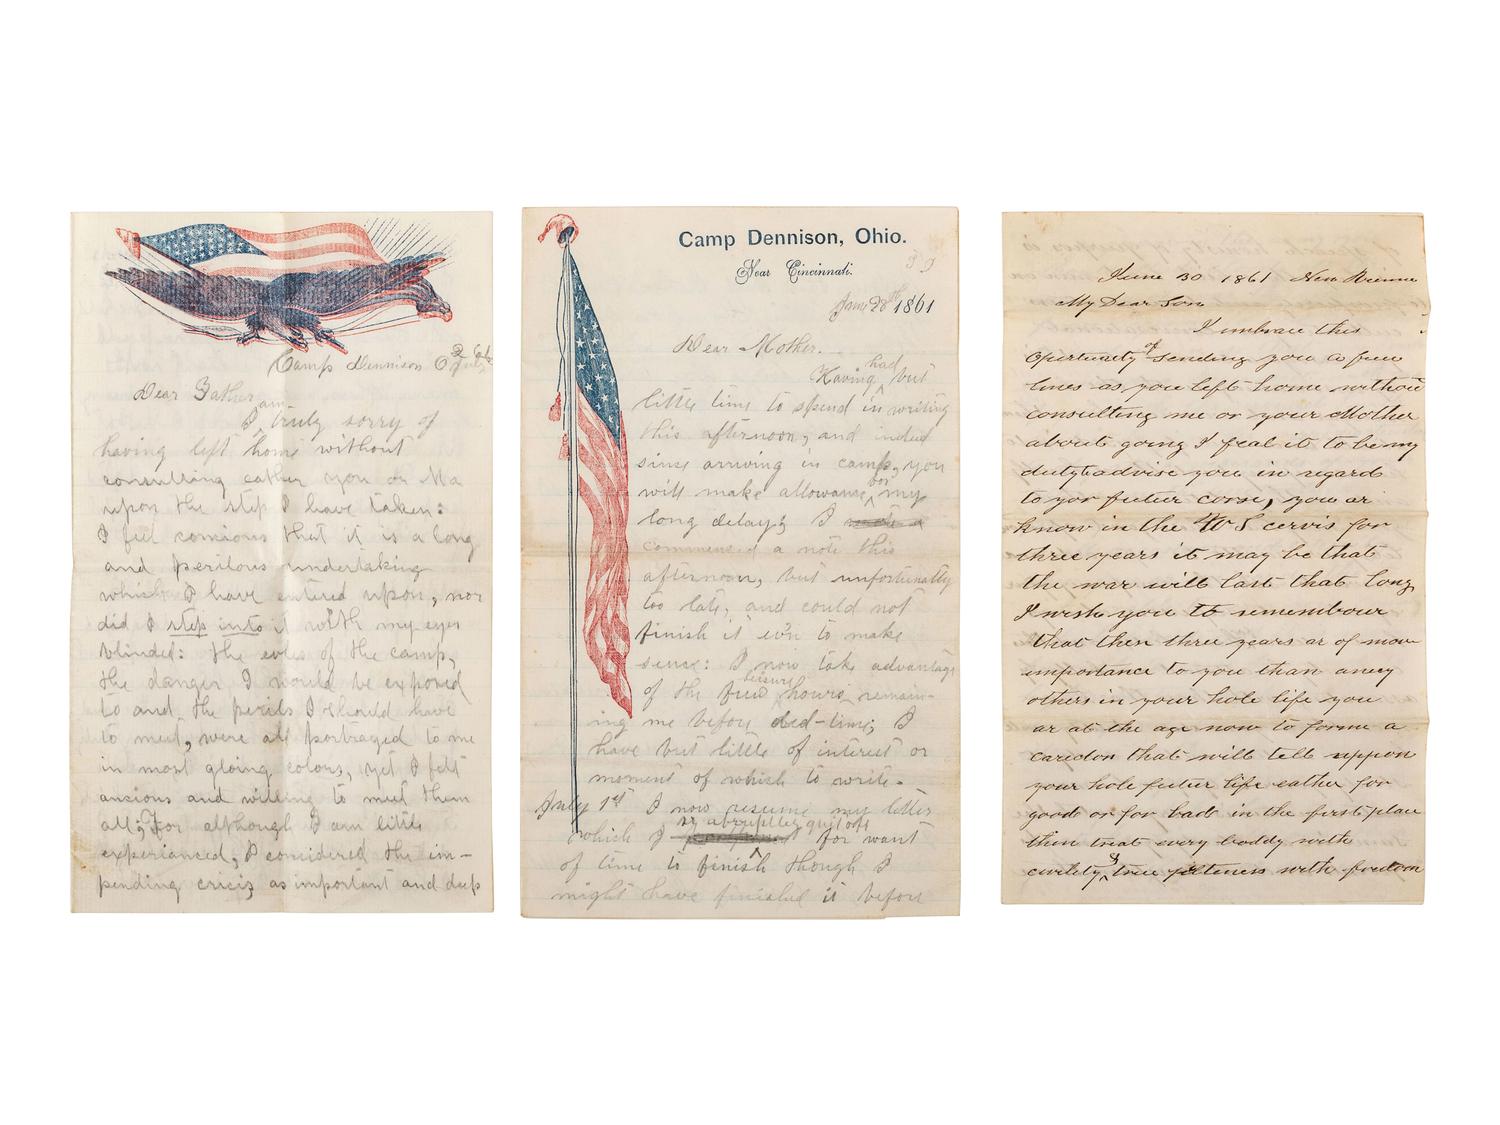 Camp Dennison
Dear Father
am
I truly sorry of
having left home without
consulting eather you or Ma
upon the step I have taken:
I feel consious that it is a long
and perilous undertaking
which I have entered upon, nor
did I step into it with my eyes
blinded: the evles of the camp,
the danger I would be exposed
to and the perils I should have
to meet, were all portrayed to me
in most gloing colors, yet I felt
ansious and willing to meet them
all; For although I am little
experianced, I considered the im-
pending crisis as important and deep
Camp Dennison, Ohio.
Near Cincinnati.
39
June 28th 1861
Dear Mother.
had
Having but
little time to spend in writing
this afternoon, and indeed
sinse arriving in camp, you
for
will make allowance my
long delay; I
commensed a note this
afternoon, but unfortunatly
too late, and could not
finish it ev'n to make
sense: I now take advantage
leisure
of the few hours remain-
ing me before bed-time; I
have but little of interest or
moment of which to write.
July 1st I now resume my letter
so abruptley quit off
which I for want
of time to finish though I
might have finished it before
June 30 1861 New Vienna
My Dear Son
I embrace this
of
oportunity sending you a few
lines as you left home without
consulting me or your Mother
about going I feal it to be my
duty to advise you in regard
to yor futier corse, you ar
know in the U S cervis for
three years it may be that
the war will last that long
I wish you to remembour
that then three years ar of more
importance to you than aney
others in your hole life you
ar at the age now to forme a
caredon that will tell uppon
your hole futer life eather for
good or for bad in the first place
then treat every boddy with
&
civility true pliteness with